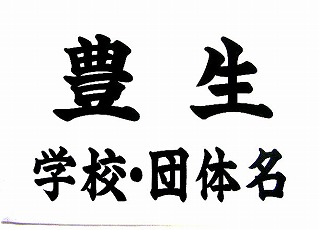 豊生
学校・団体名